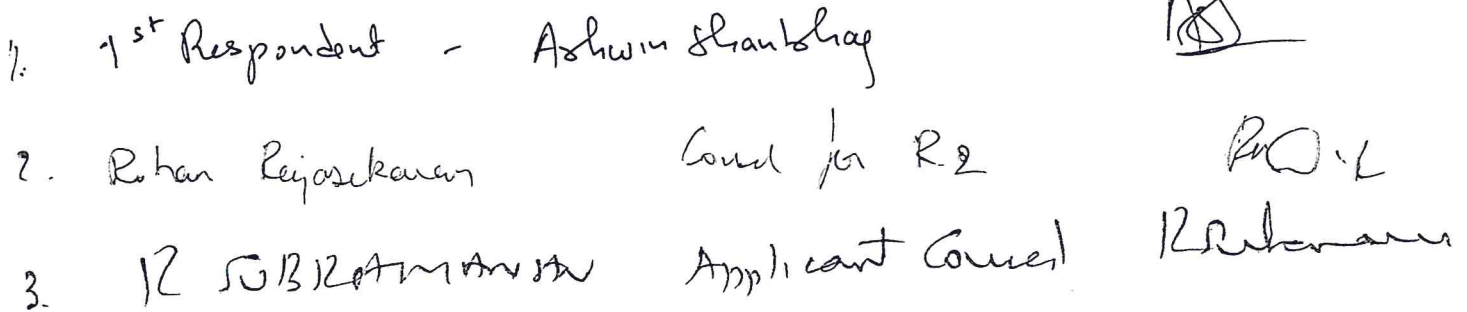 1. 1st Respondent - Ashwin Shanbhag
2. Rohan Rajasekaran Counsel for R2
3. R SUBRAMANIAN Applicant Counsel